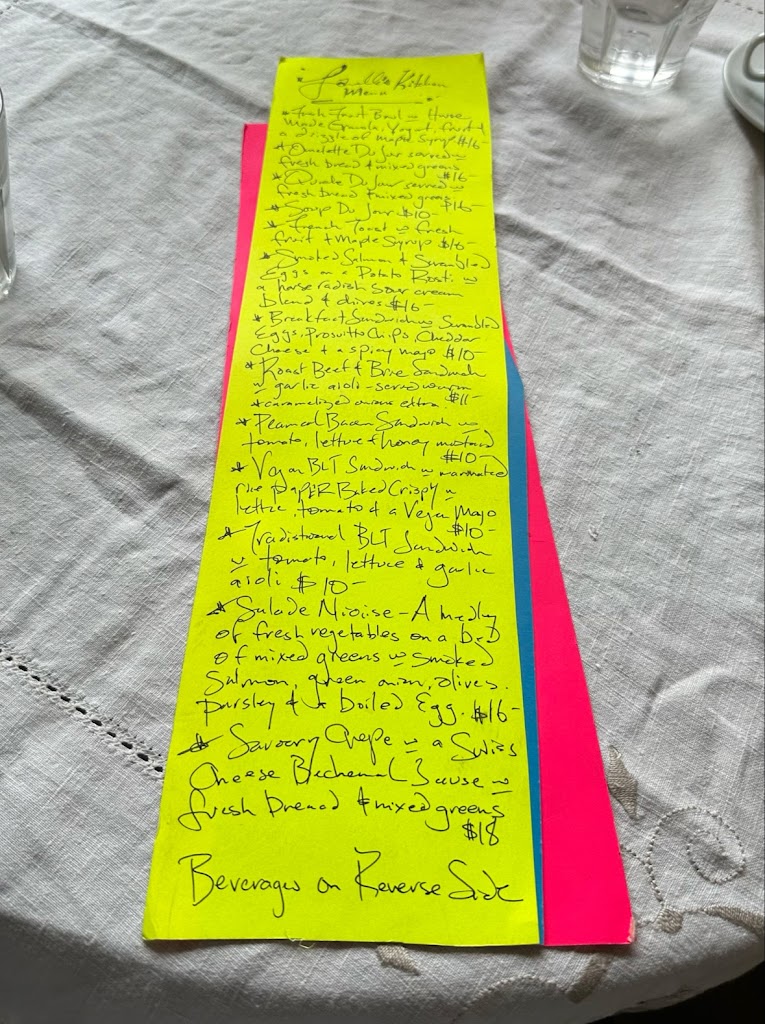 Kitchen
Menu
* Fresh Fruit Bowl w House
Made Granola, Yogurt, fruit &
a drizzle of maple syrup $16-
* Omelette Du Jour served w
fresh bread & mixed greens
$16-
* Quiche Du Jour served w
fresh bread & mixed greens
$16-
* Soup Du Jour $10-
* French Toast w fresh
fruit & Maple Syrup $16-
* Smoked Salmon & Scrambled
Eggs on a Potato Rosti w
a horse radish sour cream
blend & chives $16-
* Breakfast Sandwich w Scrambled
Eggs, Prosuitto Chips, Cheddar
Cheese & a spicy mayo $10-
* Roast Beef & Brie Sandwich
w garlic aioli - served warm
* caramelized onions extra. $11-
* Peameal Bacon Sandwich w
tomato, lettuce & honey mustard
$10-
* Vegan BLT Sandwich w marinated
rice papER Baked Crispy w
lettice, tomato & a Vegan Mayo
$10-
* Traditional BLT Sandwich
w tomato, lettuce & garlic
aioli $10-
* Salade Niçoise - A medley
of fresh vegetables on a beD
of mixed greens w smoked
Salmon, green onion, olives.
parsley & a boiled Egg. $16-
* Savoury Crepe w a Swiss
Cheese Bechemel Sauce w
fresh bread & mixed greens
$18
Beverages on Reverse Side